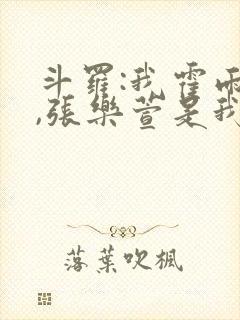 斗羅:我霍雨
,張樂萱是我
落葉吹楓